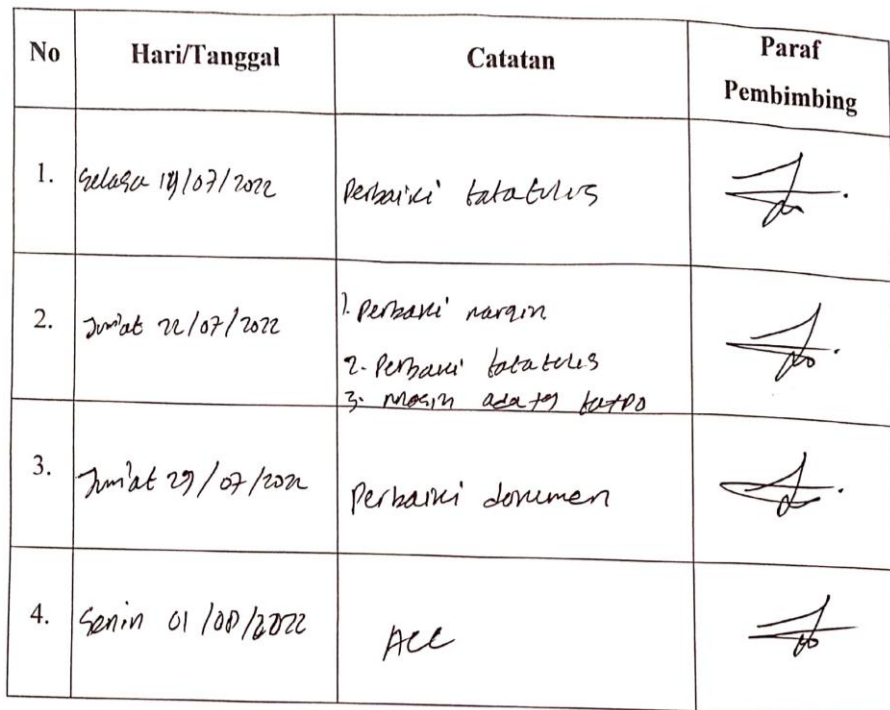 No Hari/Tanggal Catatan Paraf Pembimbing
1. Selasa 19/07/2022 Perbaiki tatatulis
2. Jum'at 22/07/2022 1. Perbaiki margin
2. Perbaiki tatatulis
3. Masih ada yg
3. Jum'at 29/07/2022 Perbaiki dokumen
4. Senin 01/08/2022 ACC